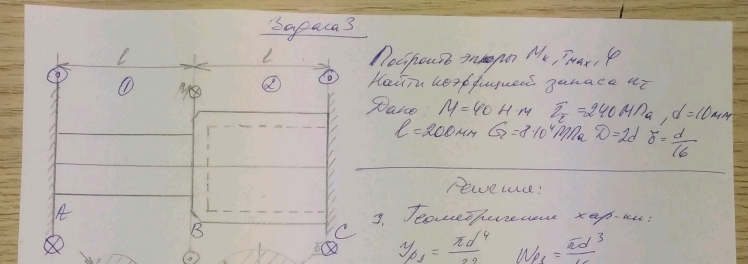 Задача 3
l l
1 2
M
Построить эпюры Mк, τmax, φ
Найти коэффициент запаса nτ
Дано: M=40 Н·м τт=240 МПа, d=10мм
l=200мм G=8·10⁴МПа D=2d δ=d/16
Решение:
1. Геометрические хар-ки:
A B C
Jp1 = πd⁴/32 Wp1 = πd³/16